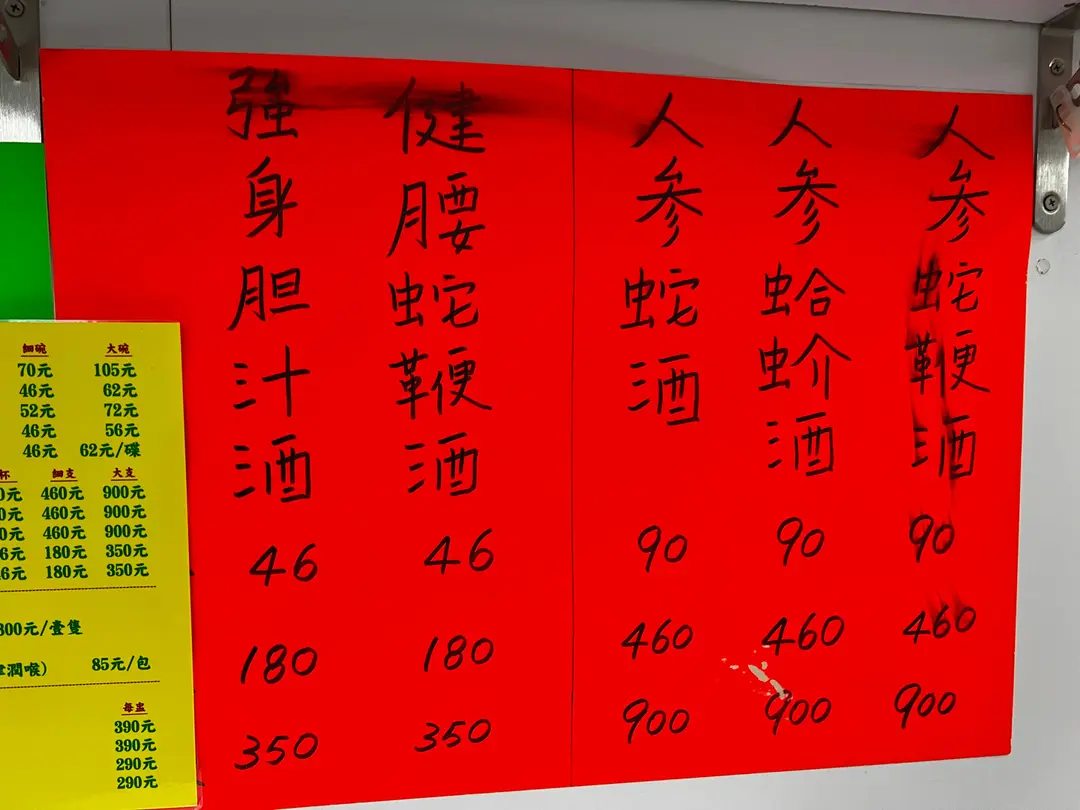 人参蛇鞭酒 90 460 900
人参蛤蚧酒 90 460 900
人参蛇酒 90 460 900
健腰蛇鞭酒 46 180 350
強身胆汁酒 46 180 350
細碗 大碗
70元 105元
46元 62元
52元 72元
46元 56元
46元 62元/碟
杯 細支 大支
0元 460元 900元
0元 460元 900元
0元 460元 900元
6元 180元 350元
46元 180元 350元
800元/壹隻
潤喉) 85元/包
每盅
390元
390元
290元
290元